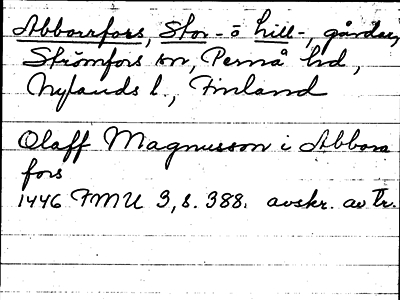 Abborrfors, Stor- o Lill-, gårdar,
Strömfors sn, Pernå hd,
Nylands l., Finland
Olaff Magnusson i Abbora
fors
1446 FMU 3, s. 388. avskr. av Tr.